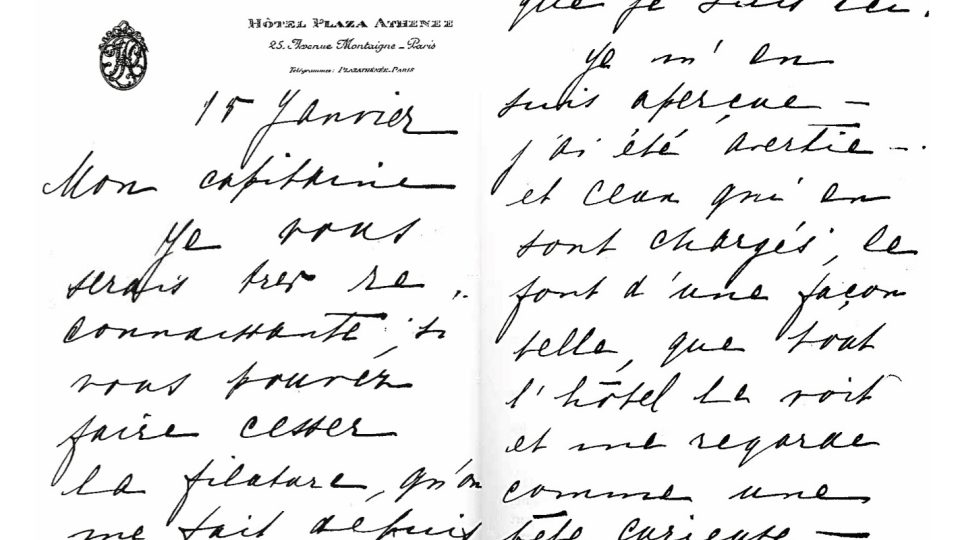 HÔTEL PLAZA ATHENEE
25, Avenue Montaigne - Paris
Télégrammes: PLAZATHÉNÉE-PARIS
15 Janvier
Mon capitaine
Je vous
serais tres re
connaissante, si
vous pouvez
faire cesser
la filature, qu'on
me fait depuis
que je suis ici.
Je m'en
suis aperçue —
j'ai été avertie —
et ceux qui en
sont chargés, le
font d'une façon
telle, que tout
l'hôtel le voit
et me regarde
comme une
bête curieuse —